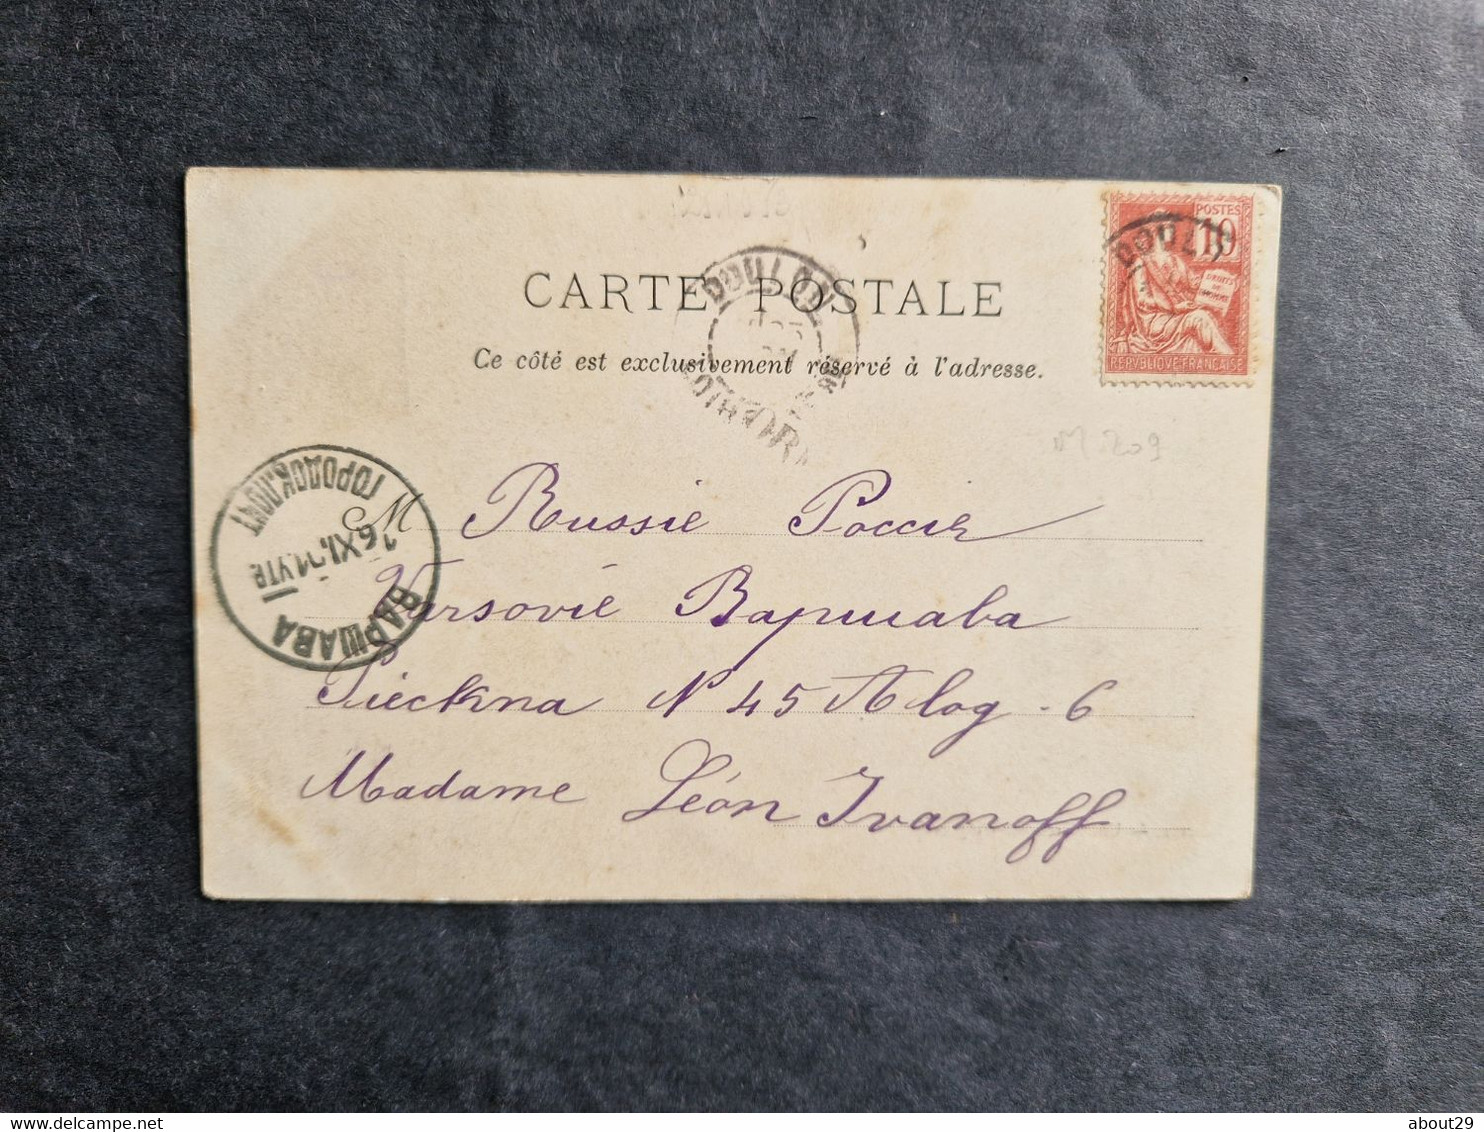 CARTE POSTALE
Ce côté est exclusivement réservé à l'adresse.
POSTES
10
DROITS DE
REPVBLIQVE FRANCAISE
DOULON
M 209
ВАРШАВА
16 XI. 01 УТР
ГОРОДСК. ПОЧТ
M Russie Россія
Varsovié Варшава
Pieckna N 45 A log - 6
Madame Léon Ivanoff
about29